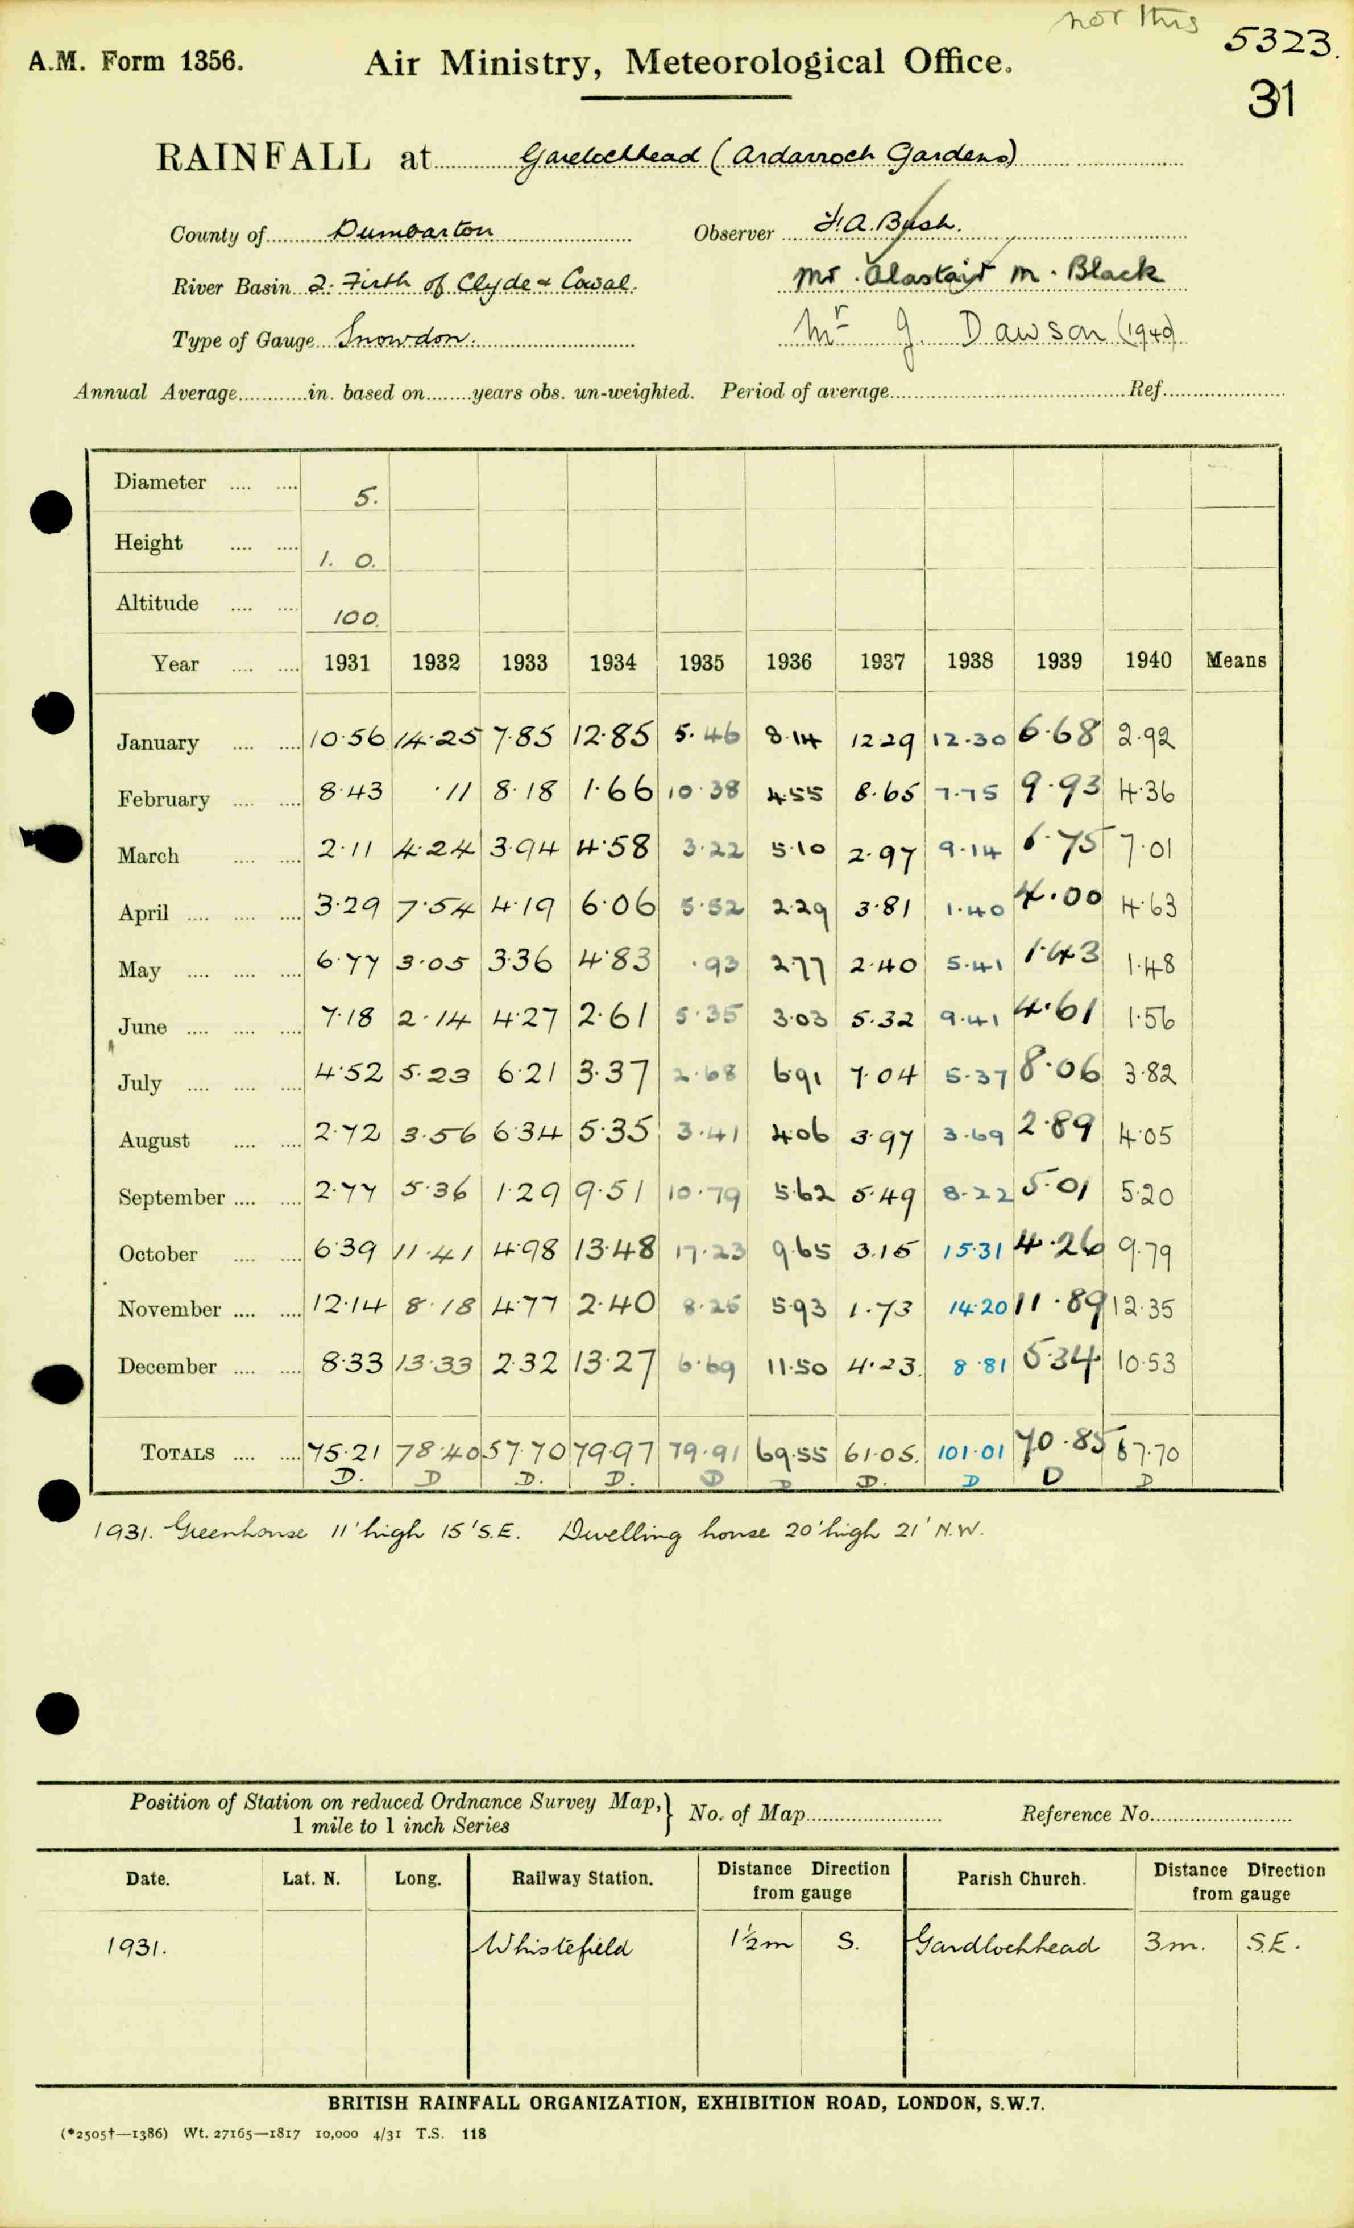 nor this
5323.
A.M. Form 1356. Air Ministry, Meteorological Office.
31
RAINFALL at Garelochhead (Ardarroch Gardens)
County of Dumbarton Observer F.A. Bush.
River Basin 2. Firth of Clyde & Cowal. Mr. Alastair M. Black
Type of Gauge Snowdon. Mr J. Dawson (1940)
Annual Average............in. based on........years obs. un-weighted. Period of average............Ref.............
Diameter .... .... 5.
Height .... .... 1. 0.
Altitude .... .... 100.
Year .... .... 1931 1932 1933 1934 1935 1936 1937 1938 1939 1940 Means
January .... .... 10.56 14.25 7.85 12.85 5.46 8.14 12.29 12.30 6.68 2.92
February .... .... 8.43 .11 8.18 1.66 10.38 4.55 8.65 7.75 9.93 4.36
March .... .... 2.11 4.24 3.94 4.58 3.22 5.10 2.97 9.14 6.75 7.01
April .... .... .... 3.29 7.54 4.19 6.06 5.52 2.29 3.81 1.40 4.00 4.63
May .... .... .... 6.77 3.05 3.36 4.83 .93 2.77 2.40 5.41 1.43 1.48
June .... .... .... 7.18 2.14 4.27 2.61 5.35 3.03 5.32 9.41 4.61 1.56
July .... .... .... 4.52 5.23 6.21 3.37 2.68 6.91 7.04 5.37 8.06 3.82
August .... .... 2.72 3.56 6.34 5.35 3.41 4.06 3.97 3.69 2.89 4.05
September .... .... 2.77 5.36 1.29 9.51 10.79 5.62 5.49 8.22 5.01 5.20
October .... .... 6.39 11.41 4.98 13.48 17.23 9.65 3.15 15.31 4.26 9.79
November .... .... 12.14 8.18 4.77 2.40 8.25 5.93 1.73 14.20 11.89 12.35
December .... .... 8.33 13.33 2.32 13.27 6.69 11.50 4.23. 8.81 5.34 10.53
TOTALS .... .... 75.21 78.40 57.70 79.97 79.91 69.55 61.05. 101.01 70.85 67.70
D. D D. D. D D D. D D D
1931. Greenhouse 11' high 15' S.E. Dwelling house 20' high 21' N.W.
Position of Station on reduced Ordnance Survey Map,} No. of Map............ Reference No............
1 mile to 1 inch Series
Date. Lat. N. Long. Railway Station. Distance Direction from gauge Parish Church. Distance Direction from gauge
1931. Whistefield 1½m S. Gardlochhead 3m. S.E.
BRITISH RAINFALL ORGANIZATION, EXHIBITION ROAD, LONDON, S.W.7.
(*2505†—1386) Wt. 27165—1817 10,000 4/31 T.S. 118